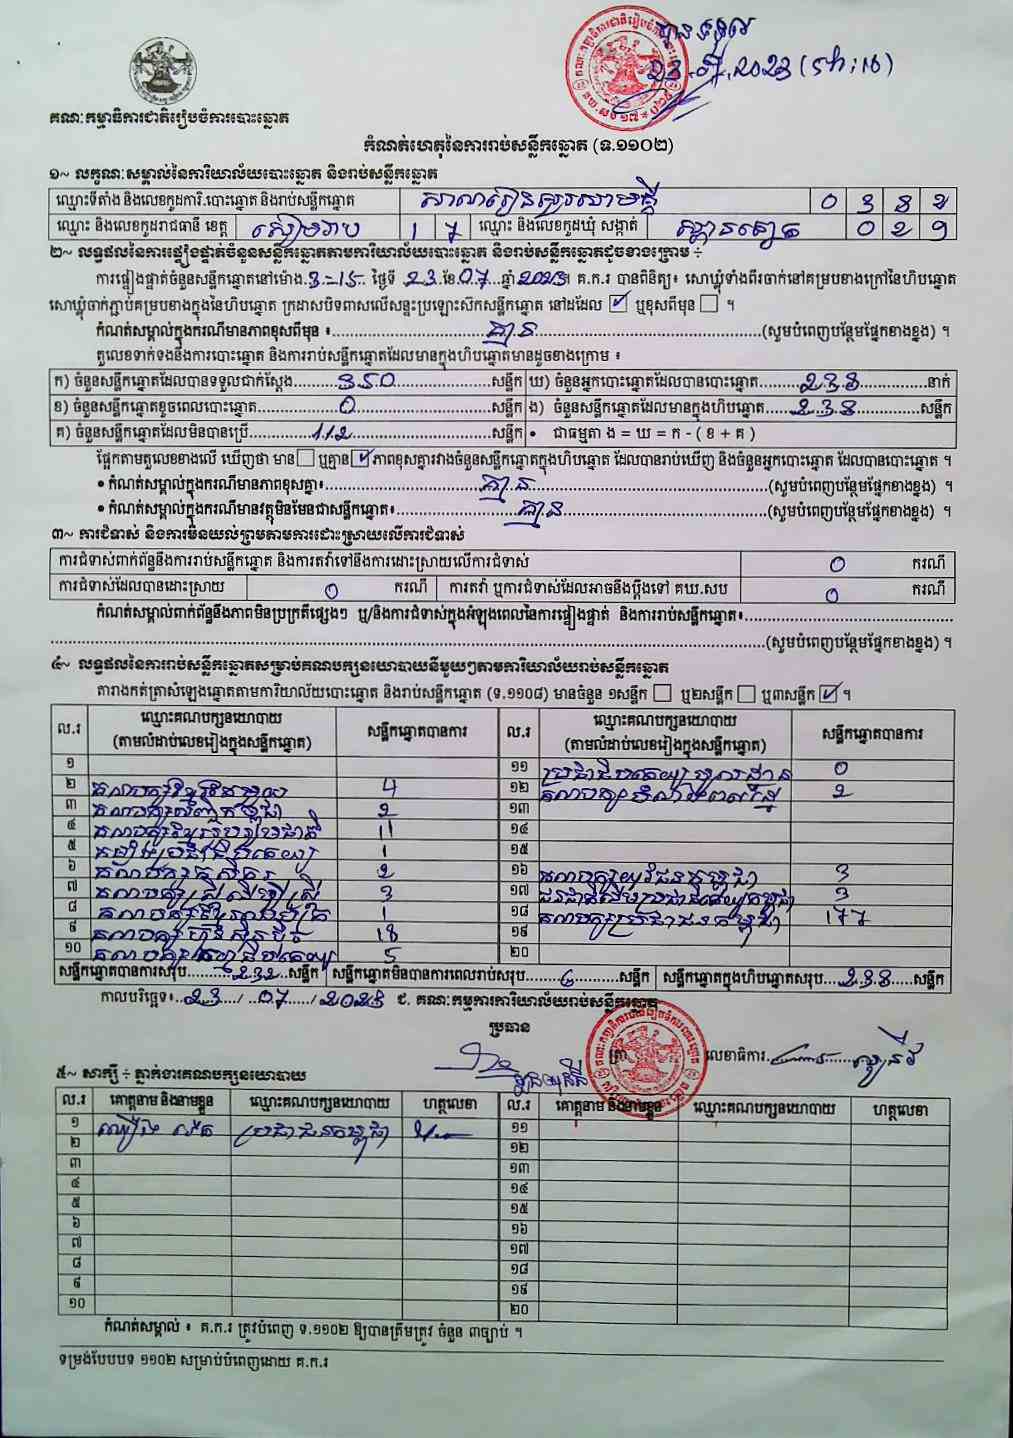 បានទទួល
23.7.2023 (
គណៈកម្មាធិការជាតិរៀបចំការបោះឆ្នោត
កំណត់ហេតុនៃការរាប់សន្លឹកឆ្នោត (ទ.១១០២)
១~ លក្ខណៈសម្គាល់នៃការិយាល័យបោះឆ្នោត និងរាប់សន្លឹកឆ្នោត
ឈ្មោះទីតាំង និងលេខកូដការិ.បោះឆ្នោត និងរាប់សន្លឹកឆ្នោត សាលារៀន
ឈ្មោះ និងលេខកូដរាជធានី ខេត្ត សៀមរាប 1 7 ឈ្មោះ និងលេខកូដឃុំ សង្កាត់
២~ លទ្ធផលនៃការផ្ទៀងផ្ទាត់ចំនួនសន្លឹកឆ្នោតតាមការិយាល័យបោះឆ្នោត និងរាប់សន្លឹកឆ្នោតដូចខាងក្រោម ÷
ការផ្ទៀងផ្ទាត់ចំនួនសន្លឹកឆ្នោតនៅម៉ោង 3-15 ថ្ងៃទី 23 ខែ 07 ឆ្នាំ 2023 ។ គ.ក.រ បានពិនិត្យ៖ សោឃ្លុំទាំងពីរចាក់នៅគម្របខាងក្រៅនៃហិបឆ្នោត
សោឃ្លុំចាក់ភ្ជាប់គម្របខាងក្នុងនៃហិបឆ្នោត ក្រដាសបិទពាសលើសន្ទះប្រឡោះស៊កសន្លឹកឆ្នោត នៅដដែល ☑ ឬខុសពីមុន ☐ ។
កំណត់សម្គាល់ក្នុងករណីមានភាពខុសពីមុន ៖ គ្មាន (សូមបំពេញបន្ថែមផ្នែកខាងខ្នង) ។
តួលេខទាក់ទងនឹងការបោះឆ្នោត និងការរាប់សន្លឹកឆ្នោតដែលមានក្នុងហិបឆ្នោតមានដូចខាងក្រោម ៖
ក) ចំនួនសន្លឹកឆ្នោតដែលបានទទួលជាក់ស្តែង 350 សន្លឹក ឃ) ចំនួនអ្នកបោះឆ្នោតដែលបានបោះឆ្នោត 238 នាក់
ខ) ចំនួនសន្លឹកឆ្នោតខូចពេលបោះឆ្នោត 0 សន្លឹក ង) ចំនួនសន្លឹកឆ្នោតដែលមានក្នុងហិបឆ្នោត 238 សន្លឹក
គ) ចំនួនសន្លឹកឆ្នោតដែលមិនបានប្រើ 112 សន្លឹក • ជាធម្មតា ង = ឃ = ក - ( ខ + គ )
ផ្អែកតាមតួលេខខាងលើ ឃើញថា មាន ☐ ឬគ្មាន ☑ ភាពខុសគ្នារវាងចំនួនសន្លឹកឆ្នោតក្នុងហិបឆ្នោត ដែលបានរាប់ឃើញ និងចំនួនអ្នកបោះឆ្នោត ដែលបានបោះឆ្នោត ។
• កំណត់សម្គាល់ក្នុងករណីមានភាពខុសគ្នា៖ គ្មាន (សូមបំពេញបន្ថែមផ្នែកខាងខ្នង) ។
• កំណត់សម្គាល់ក្នុងករណីមានវត្ថុមិនមែនជាសន្លឹកឆ្នោត៖ គ្មាន (សូមបំពេញបន្ថែមផ្នែកខាងខ្នង) ។
៣~ ការជំទាស់ និងការមិនយល់ព្រមតាមការដោះស្រាយលើការជំទាស់
ការជំទាស់ពាក់ព័ន្ធនឹងការរាប់សន្លឹកឆ្នោត និងការតវ៉ាទៅនឹងការដោះស្រាយលើការជំទាស់ 0 ករណី
ការជំទាស់ដែលបានដោះស្រាយ 0 ករណី ការតវ៉ា ឬការជំទាស់ដែលអាចនឹងប្តឹងទៅ គឃ.សប 0 ករណី
កំណត់សម្គាល់ពាក់ព័ន្ធនឹងភាពមិនប្រក្រតីផ្សេងៗ ឬ/និងការជំទាស់ក្នុងអំឡុងពេលនៃការផ្ទៀងផ្ទាត់ និងការរាប់សន្លឹកឆ្នោត៖
(សូមបំពេញបន្ថែមផ្នែកខាងខ្នង) ។
៤~ លទ្ធផលនៃការរាប់សន្លឹកឆ្នោតសម្រាប់គណបក្សនយោបាយនីមួយៗតាមការិយាល័យរាប់សន្លឹកឆ្នោត
តារាងកត់ត្រាសំឡេងឆ្នោតតាមការិយាល័យបោះឆ្នោត និងរាប់សន្លឹកឆ្នោត (ទ.១១០៨) មានចំនួន ១សន្លឹក ☐ ឬ២សន្លឹក ☐ ឬ៣សន្លឹក ☑ ។
ល.រ ឈ្មោះគណបក្សនយោបាយ (តាមលំដាប់លេខរៀងក្នុងសន្លឹកឆ្នោត) សន្លឹកឆ្នោតបានការ ល.រ ឈ្មោះគណបក្សនយោបាយ (តាមលំដាប់លេខរៀងក្នុងសន្លឹកឆ្នោត) សន្លឹកឆ្នោតបានការ
១ ១១ ប្រជាធិបតេយ្យមូលដ្ឋាន 0
២ 4 ១២ គណបក្ស 2
៣ 2 ១៣
៤ 11 ១៤
៥ 1 ១៥
៦ គណបក្សកសិករ 2 ១៦ គណបក្សយុវជនកម្ពុជា 3
៧ គណបក្ស 3 ១៧ ជនជាតិដើមប្រជាធិបតេយ្យកម្ពុជា 3
៨ គណបក្ស 1 ១៨ គណបក្សប្រជាជនកម្ពុជា 177
៩ គណបក្សហ៊្វុនស៊ិនប៉ិច 18 ១៩
១០ គណបក្ស 5 ២០
សន្លឹកឆ្នោតបានការសរុប 232 សន្លឹក សន្លឹកឆ្នោតមិនបានការពេលរាប់សរុប 6 សន្លឹក សន្លឹកឆ្នោតក្នុងហិបឆ្នោតសរុប 238 សន្លឹក
កាលបរិច្ឆេទ៖ 23 / 07 / 2023 ជ. គណៈកម្មការការិយាល័យរាប់សន្លឹកឆ្នោត
ប្រធាន
ត្រា លេខាធិការ
៥~ សាក្សី ÷ ភ្នាក់ងារគណបក្សនយោបាយ
ល.រ គោត្តនាម និងនាមខ្លួន ឈ្មោះគណបក្សនយោបាយ ហត្ថលេខា ល.រ គោត្តនាម និងនាមខ្លួន ឈ្មោះគណបក្សនយោបាយ ហត្ថលេខា
១ ប្រជាជនកម្ពុជា ១១
២ ១២
៣ ១៣
៤ ១៤
៥ ១៥
៦ ១៦
៧ ១៧
៨ ១៨
៩ ១៩
១០ ២០
កំណត់សម្គាល់ ៖ គ.ក.រ ត្រូវបំពេញ ទ.១១០២ ឱ្យបានត្រឹមត្រូវ ចំនួន ៣ច្បាប់ ។
ទម្រង់បែបបទ ១១០២ សម្រាប់បំពេញដោយ គ.ក.រ